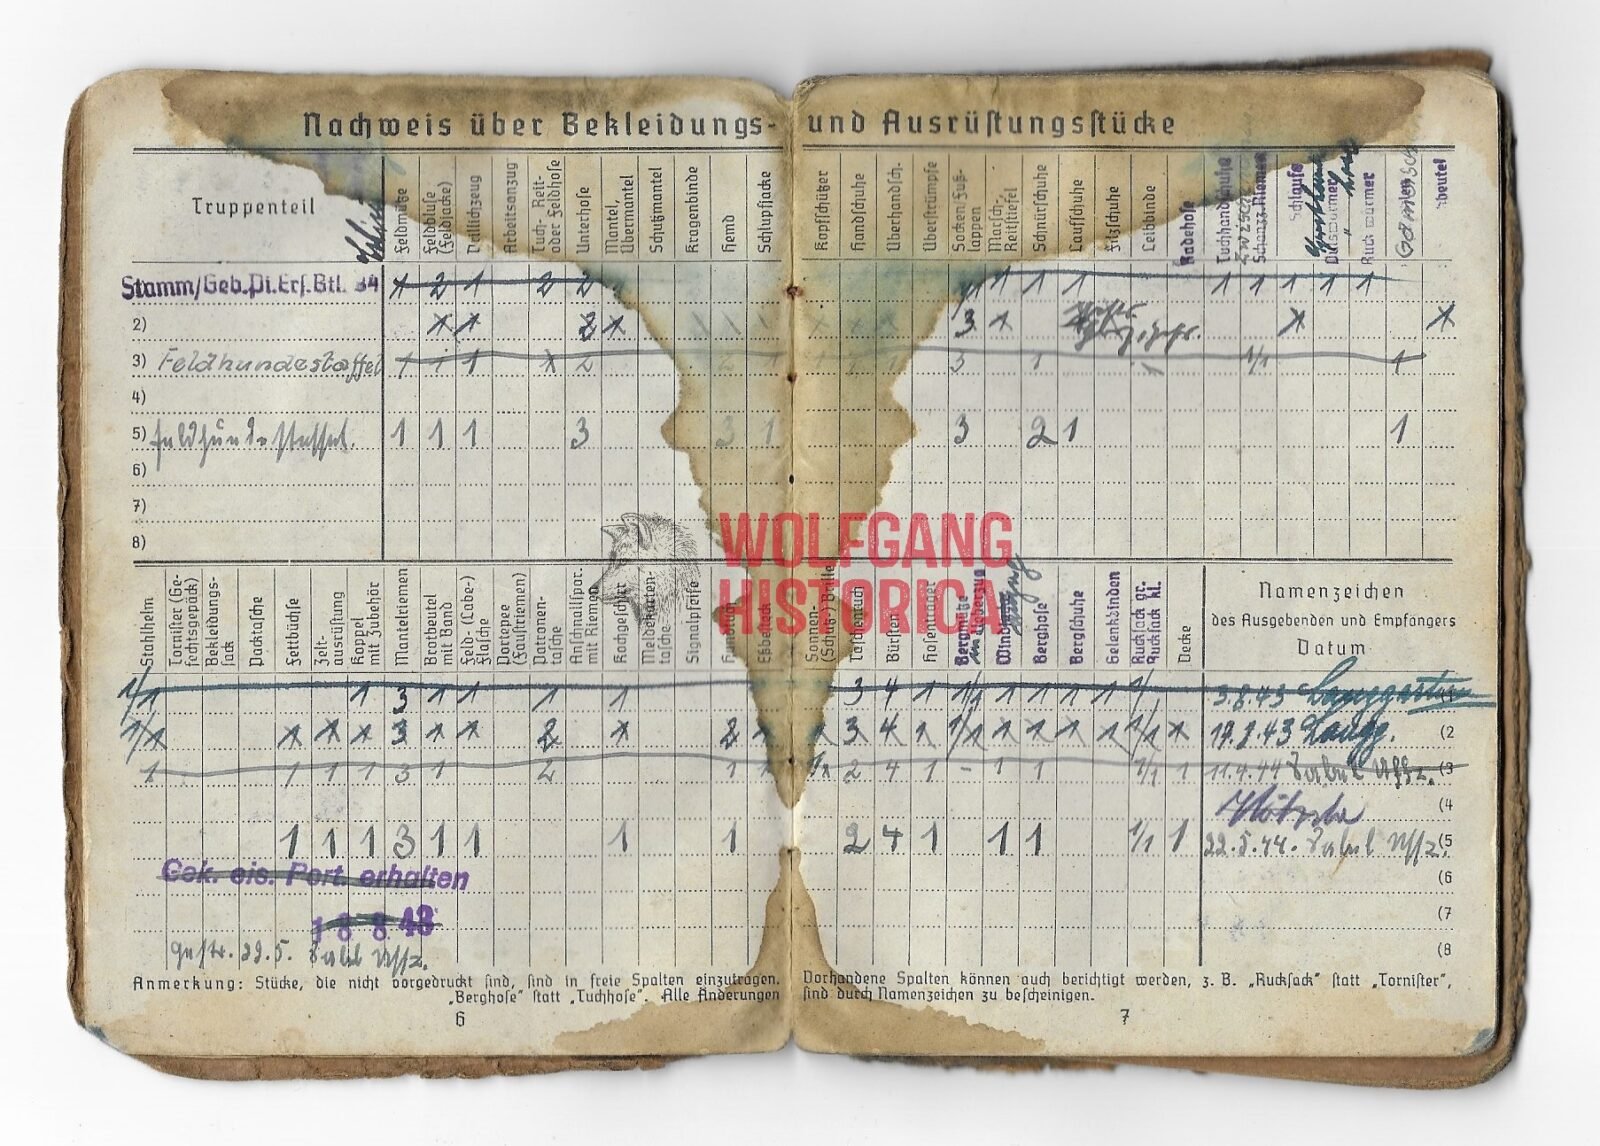 Nachweis über Bekleidungs- und Ausrüstungsstücke
Truppenteil
Feldmütze
Feldbluse (Feldjacke)
Drillichzeug
Arbeitsanzug
Tuch- Reit- oder Feldhose
Unterhose
Mantel, Übermantel
Schutzmantel
Kragenbinde
Hemd
Schlupfjacke
Kopfschützer
Handschuhe
Überhandsch.
Überstrümpfe
Socken Fuß- lappen
Marsch- Reitstiefel
Schnürschuhe
Laufschuhe
Filzschuhe
Leibbinde
Badehose
Tuchhandschuhe
Schlaufe
Pulswärmer
Stamm/Geb.Pi.Ers.Btl. 54 1 2 1 2 2 1 1 1 1 1 1 1 1 1
2) x 1 2 x 3 x x x
3) Feldhundestaffel 1 1 1 x 2 2 1 3 1 1 1/1 1
4)
5) Feldhundestaffel. 1 1 1 3 3 1 3 2 1 1
6)
7)
8)
Stahlhelm
Tornister (Ge- fechtsgepäck)
Bekleidungs- sack
Packtasche
Fettbüchse
Zelt- ausrüstung
Koppel mit Zubehör
Mantelriemen
Brotbeutel mit Band
Feld- (Labe-) Flasche
Portepee (Faustriemen)
Patronen- tasche
Anschnallspor. mit Riemen
Kochgeschirr
Meldekarten- tasche
Signalpfeife
Handtuch
Eßbesteck
Sonnen- (Schutz-) Brille
Taschentuch
Bürsten
Hosenträger
Bergmütze
Berghose
Bergschuhe
Gelenkbinden
Rucksack gr.
Rucksack kl.
Decke
Namenzeichen
des Ausgebenden und Empfängers
Datum
1/1 1 3 1 1 1 1 3 4 1 1/1 1 1 1 1 1/ 3.8.43 (1
1/x x x x 3 x x 2 x 2 x x 3 4 x 1/1 x x x x 1/1 x 19.8.43 Langg. (2
1 1 1 1 3 1 2 1 1 1/x 2 4 1 - 1 1 1/1 1 11.4.44 Uffz. (3
(4
1 1 1 3 1 1 1 1 2 4 1 1 1 1/1 1 22.5.44. Uffz. (5
Gek. eis. Port. erhalten (6
18 8 43 (7
gestr. 22.5. Uffz. (8
Anmerkung: Stücke, die nicht vorgedruckt sind, sind in freie Spalten einzutragen. Vorhandene Spalten können auch berichtigt werden, z. B. „Rucksack" statt „Tornister",
„Berghose" statt „Tuchhose". Alle Änderungen sind durch Namenzeichen zu bescheinigen.
6 7
WOLFGANG
HISTORICA